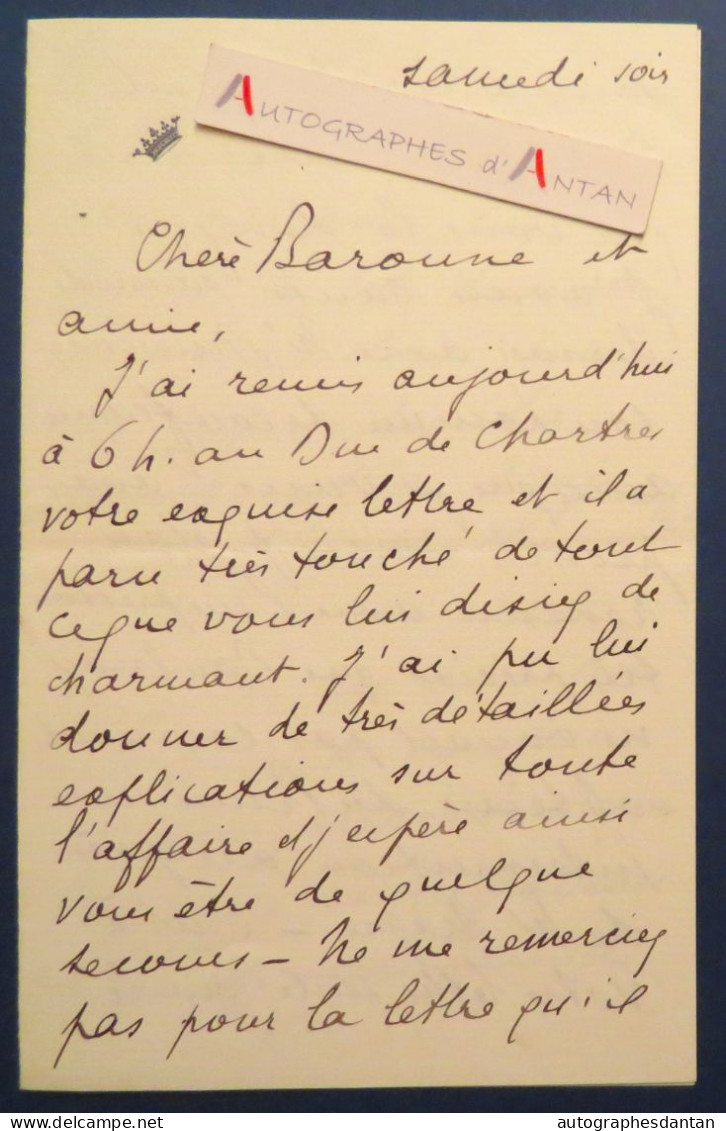 samedi soir
AUTOGRAPHES d'ANTAN
Chère Baronne et
amie,
J'ai remis aujourd'hui
à 6 h. au Duc de Chartres
votre exquise lettre et il a
paru très touché de tout
ce que vous lui disiez de
charmant. J'ai pu lui
donner de très détaillées
explications sur toute
l'affaire et j'espère ainsi
vous être de quelque
secours – Ne me remerciez
pas pour la lettre qu'il
© delcampe.net
autographesdantan